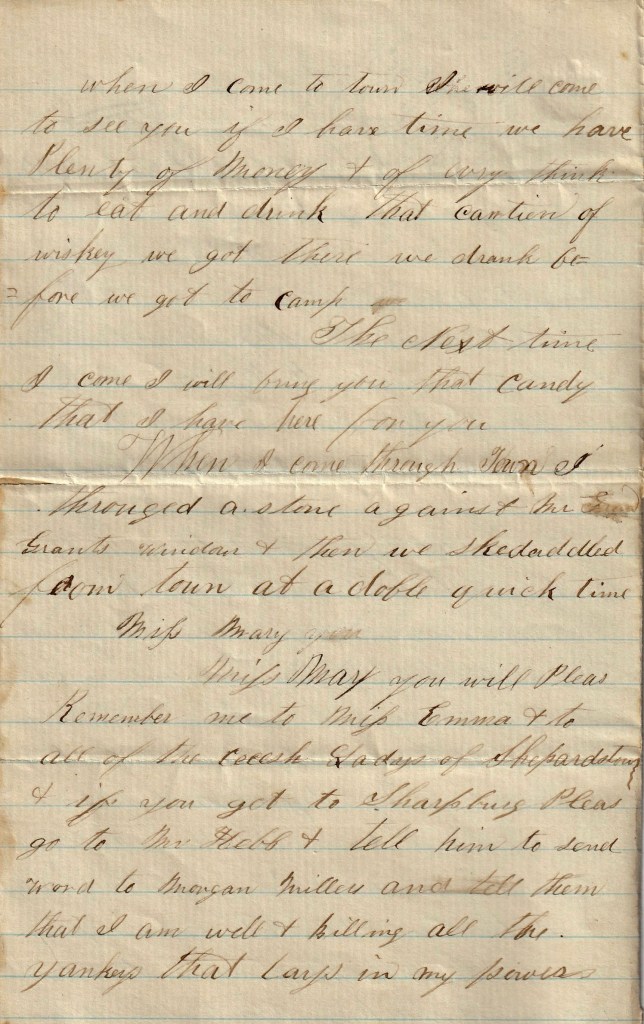 when I come to town I will come
to see you if I have time we have
Plenty of Money & of evry think
to eat and drink that cantien of
wiskey we got there we drank be=
=fore we got to camp
The Next time
I come I will bring you that Candy
that I have here for you
When I come through Town I
througed a stone against Mr
Grants window & then we skedaddled
from town at a doble quick time
Miss Mary you
Miss Mary you will Pleas
Remember me to Miss Emma & to
all of the cecesh Ladys of Shepardstown
& if you get to Sharpburg Pleas
go to Mr Hebb & tell him to send
word to Morgan Millers and tell them
that I am well & killing all the
yankeys that lays in my power